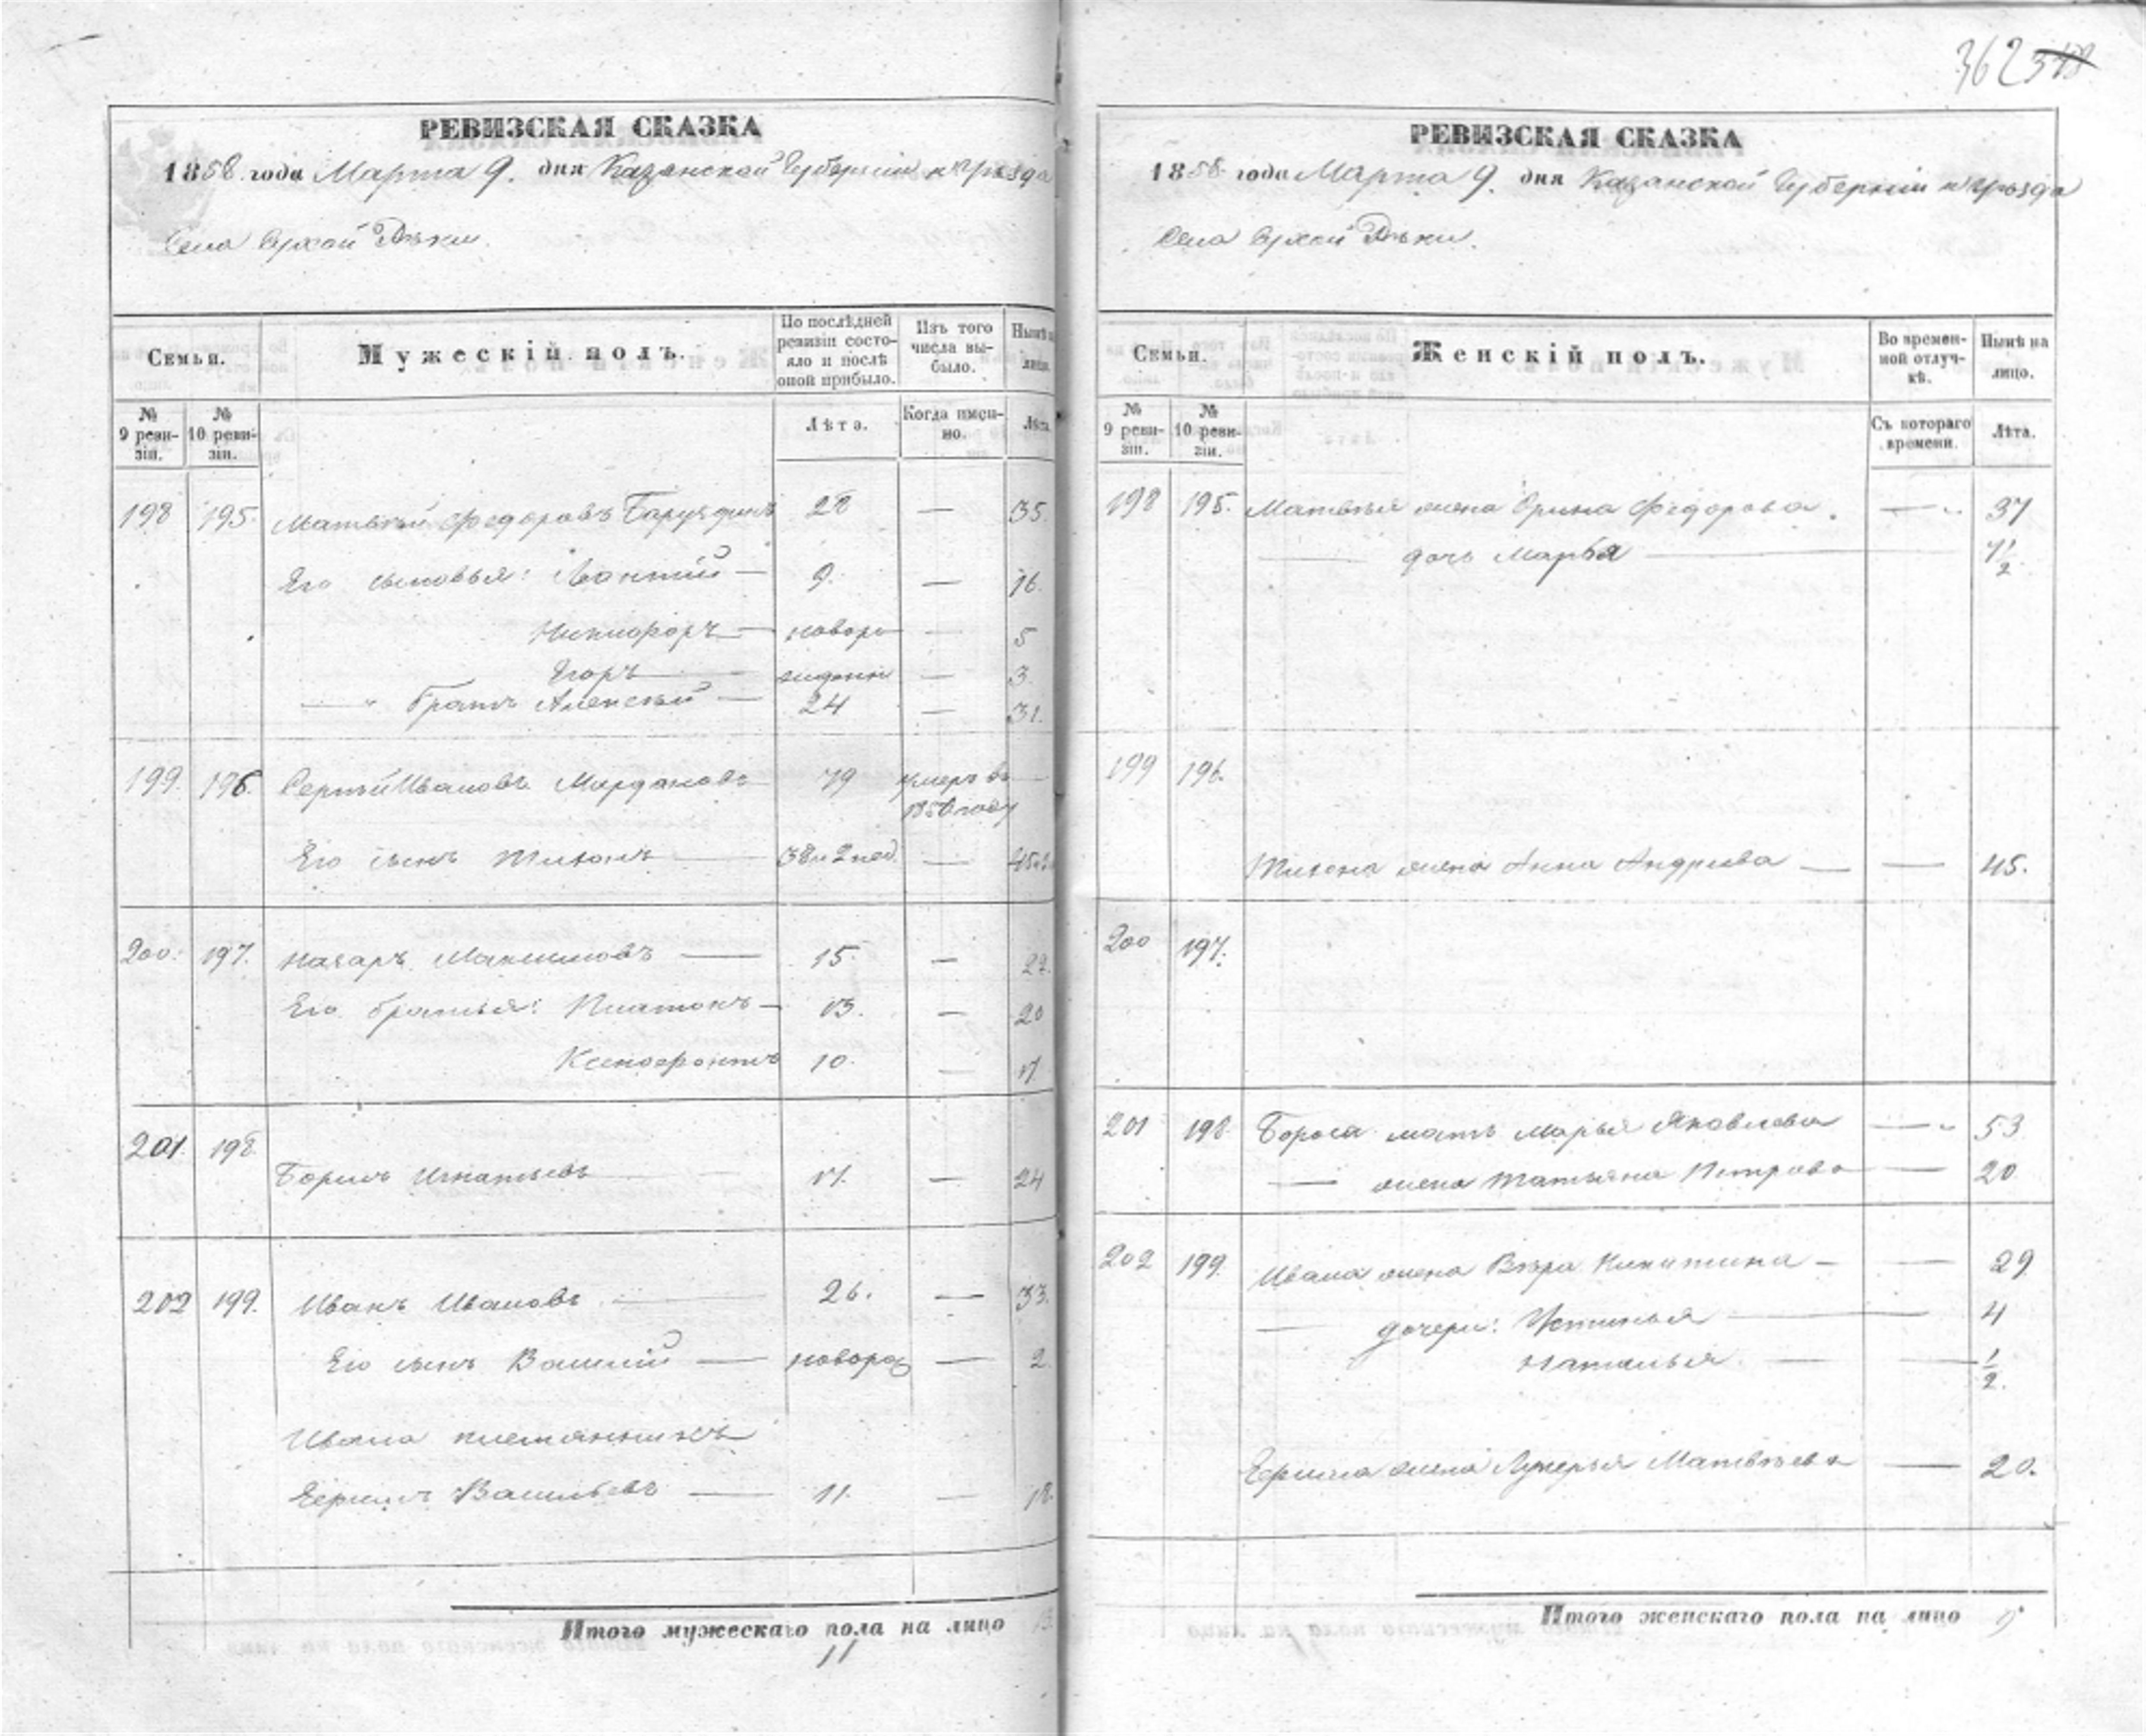 362 318
РЕВИЗСКАЯ СКАЗКА
1858 года Марта 9. дня Казанской Губерніи и уѣзда
Села Сухой Рѣки.
Семьи.
Мужескій полъ.
По послѣдней ревизіи состояло и послѣ оной прибыло.
Изъ того числа выбыло.
Нынѣ на лицо.
№ 9 ревизіи.
№ 10 ревизіи.
Лѣта.
Когда именно.
Лѣта.
198 195. Матвѣй Федоровъ 28 — 35.
Его сыновья: Леонтій — 9. — 16.
Никифоръ — новоро — 5
Егоръ — жденн — 3.
— " Братъ Алексѣй — 24 — 31.
199. 196. Сергѣй Ивановъ Мардановъ 79 умеръ въ —
1856 году
Его сынъ Тихонъ — 38 и 2 нед. — 45
200. 197. Назаръ Максимовъ — 15. — 22.
Его братья: Платонъ — 13. — 20
Ксенофонтъ 10. — 17
201. 198. Борисъ Игнатьевъ — 17. — 24
202 199. Иванъ Ивановъ — 26. — 33.
Его сынъ Василій — новорож — 2.
Ивана племянникъ
Ефимъ Васильевъ — 11. — 18.
Итого мужескаго пола на лицо 13.
11
РЕВИЗСКАЯ СКАЗКА
1858 года Марта 9. дня Казанской Губерніи и уѣзда
Села Сухой Рѣки.
Семьи.
Женскій полъ.
Во временной отлучкѣ.
Нынѣ на лицо.
№ 9 ревизіи.
№ 10 ревизіи.
Съ котораго времени.
Лѣта.
198 195. Матвѣя жена Орина Федорова. — 37
— дочь Марья — 7½
199 196.
Тихона жена Анна Андреева — — 45.
200 197.
201 198 Бориса мать Марья Яковлева — 53
— жена Татьяна Петрова — 20
202 199. Ивана жена Вѣра Никитина — — 29
— дочери: Устинья — 4
Наталья — — ½.
Ефима жена Лукерья Матвѣева — 20.
Итого женскаго пола на лицо 9